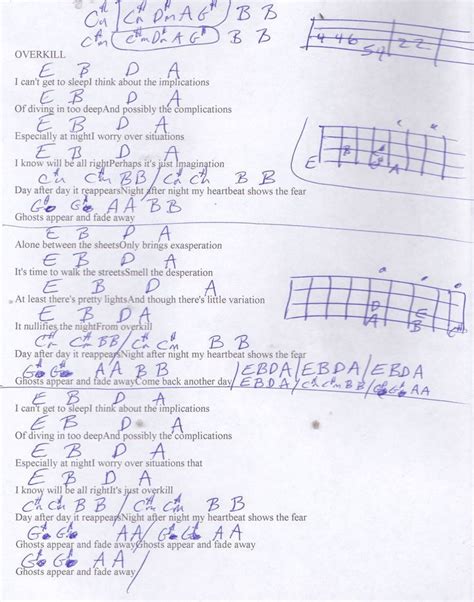 C#m C#m D#m A G# B B
C#m C#m D#m A G# B B
4 4 6 5 4 2 2
OVERKILL
E B D A
I can't get to sleepI think about the implications
E B D A
Of diving in too deepAnd possibly the complications
E B D A
Especially at nightI worry over situations
E B D A
I know I will be all rightPerhaps it's just Imagination
C#m C#m B B / C#m C#m B B
Day after day it reappearsNight after night my heartbeat shows the fear
G# G# A A B B
Ghosts appear and fade away
E B D A
Alone between the sheetsOnly brings exasperation
E B D A
It's time to walk the streetsSmell the desperation
E B D A
At least there's pretty lightsAnd though there's little variation
E B D A
It nullifies the nightFrom overkill
C#m C#m B B / C#m C#m B B
Day after day it reappearsNight after night my heartbeat shows the fear
G# G# A A B B
Ghosts appear and fade awayCome back another day
/ E B D A / E B D A / E B D A
/ E B D A / C#m C#m B B / G# G# A A
E B D A
I can't get to sleepI think about the implications
E B D A
Of diving in too deepAnd possibly the complications
E B D A
Especially at nightI worry over situations that
E B D A
I know will be all rightIt's just overkill
C#m C#m B B / C#m C#m B B
Day after day it reappearsNight after night my heartbeat shows the fear
G# G# A A / G# G# A A
Ghosts appear and fade awayGhosts appear and fade away
G# G# A A /
Ghosts appear and fade away